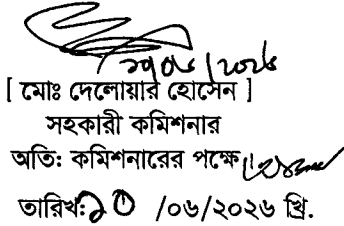 [ মোঃ দেলোয়ার হোসেন ]
সহকারী কমিশনার
অতি: কমিশনারের পক্ষে
তারিখ:১০ /০৬/২০২৬ খ্রি.